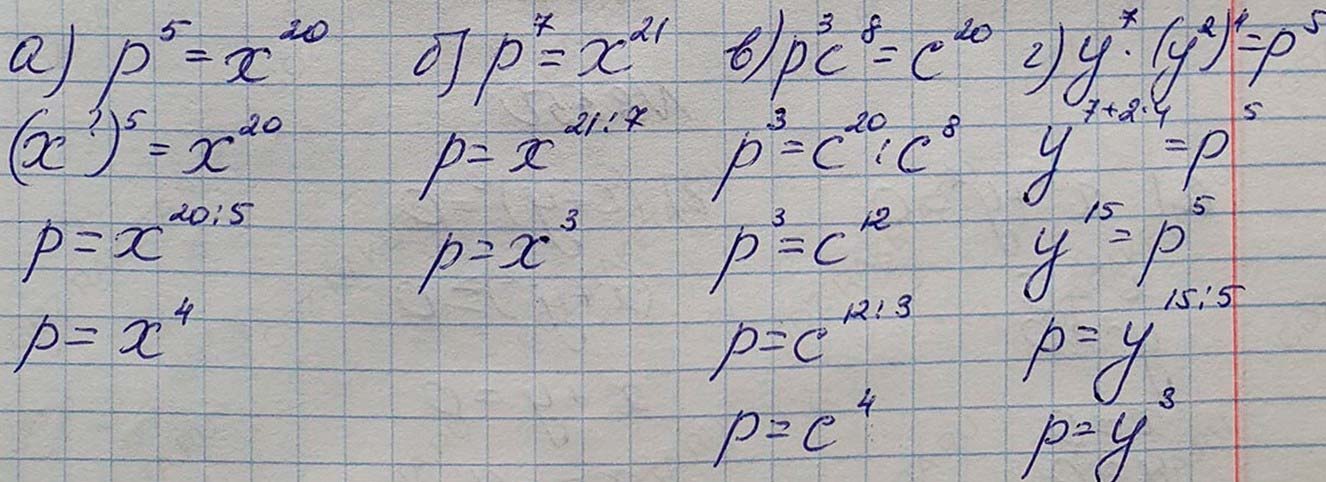 а) p⁵ = x²⁰
(x^?)⁵ = x²⁰
p = x^{20:5}
p = x⁴
б) p⁷ = x²¹
p = x^{21:7}
p = x³
в) p³c⁸ = c²⁰
p³ = c²⁰ : c⁸
p³ = c¹²
p = c^{12:3}
p = c⁴
г) y⁷ · (y²)⁴ = p⁵
y^{7+2·4} = p⁵
y¹⁵ = p⁵
p = y^{15:5}
p = y³